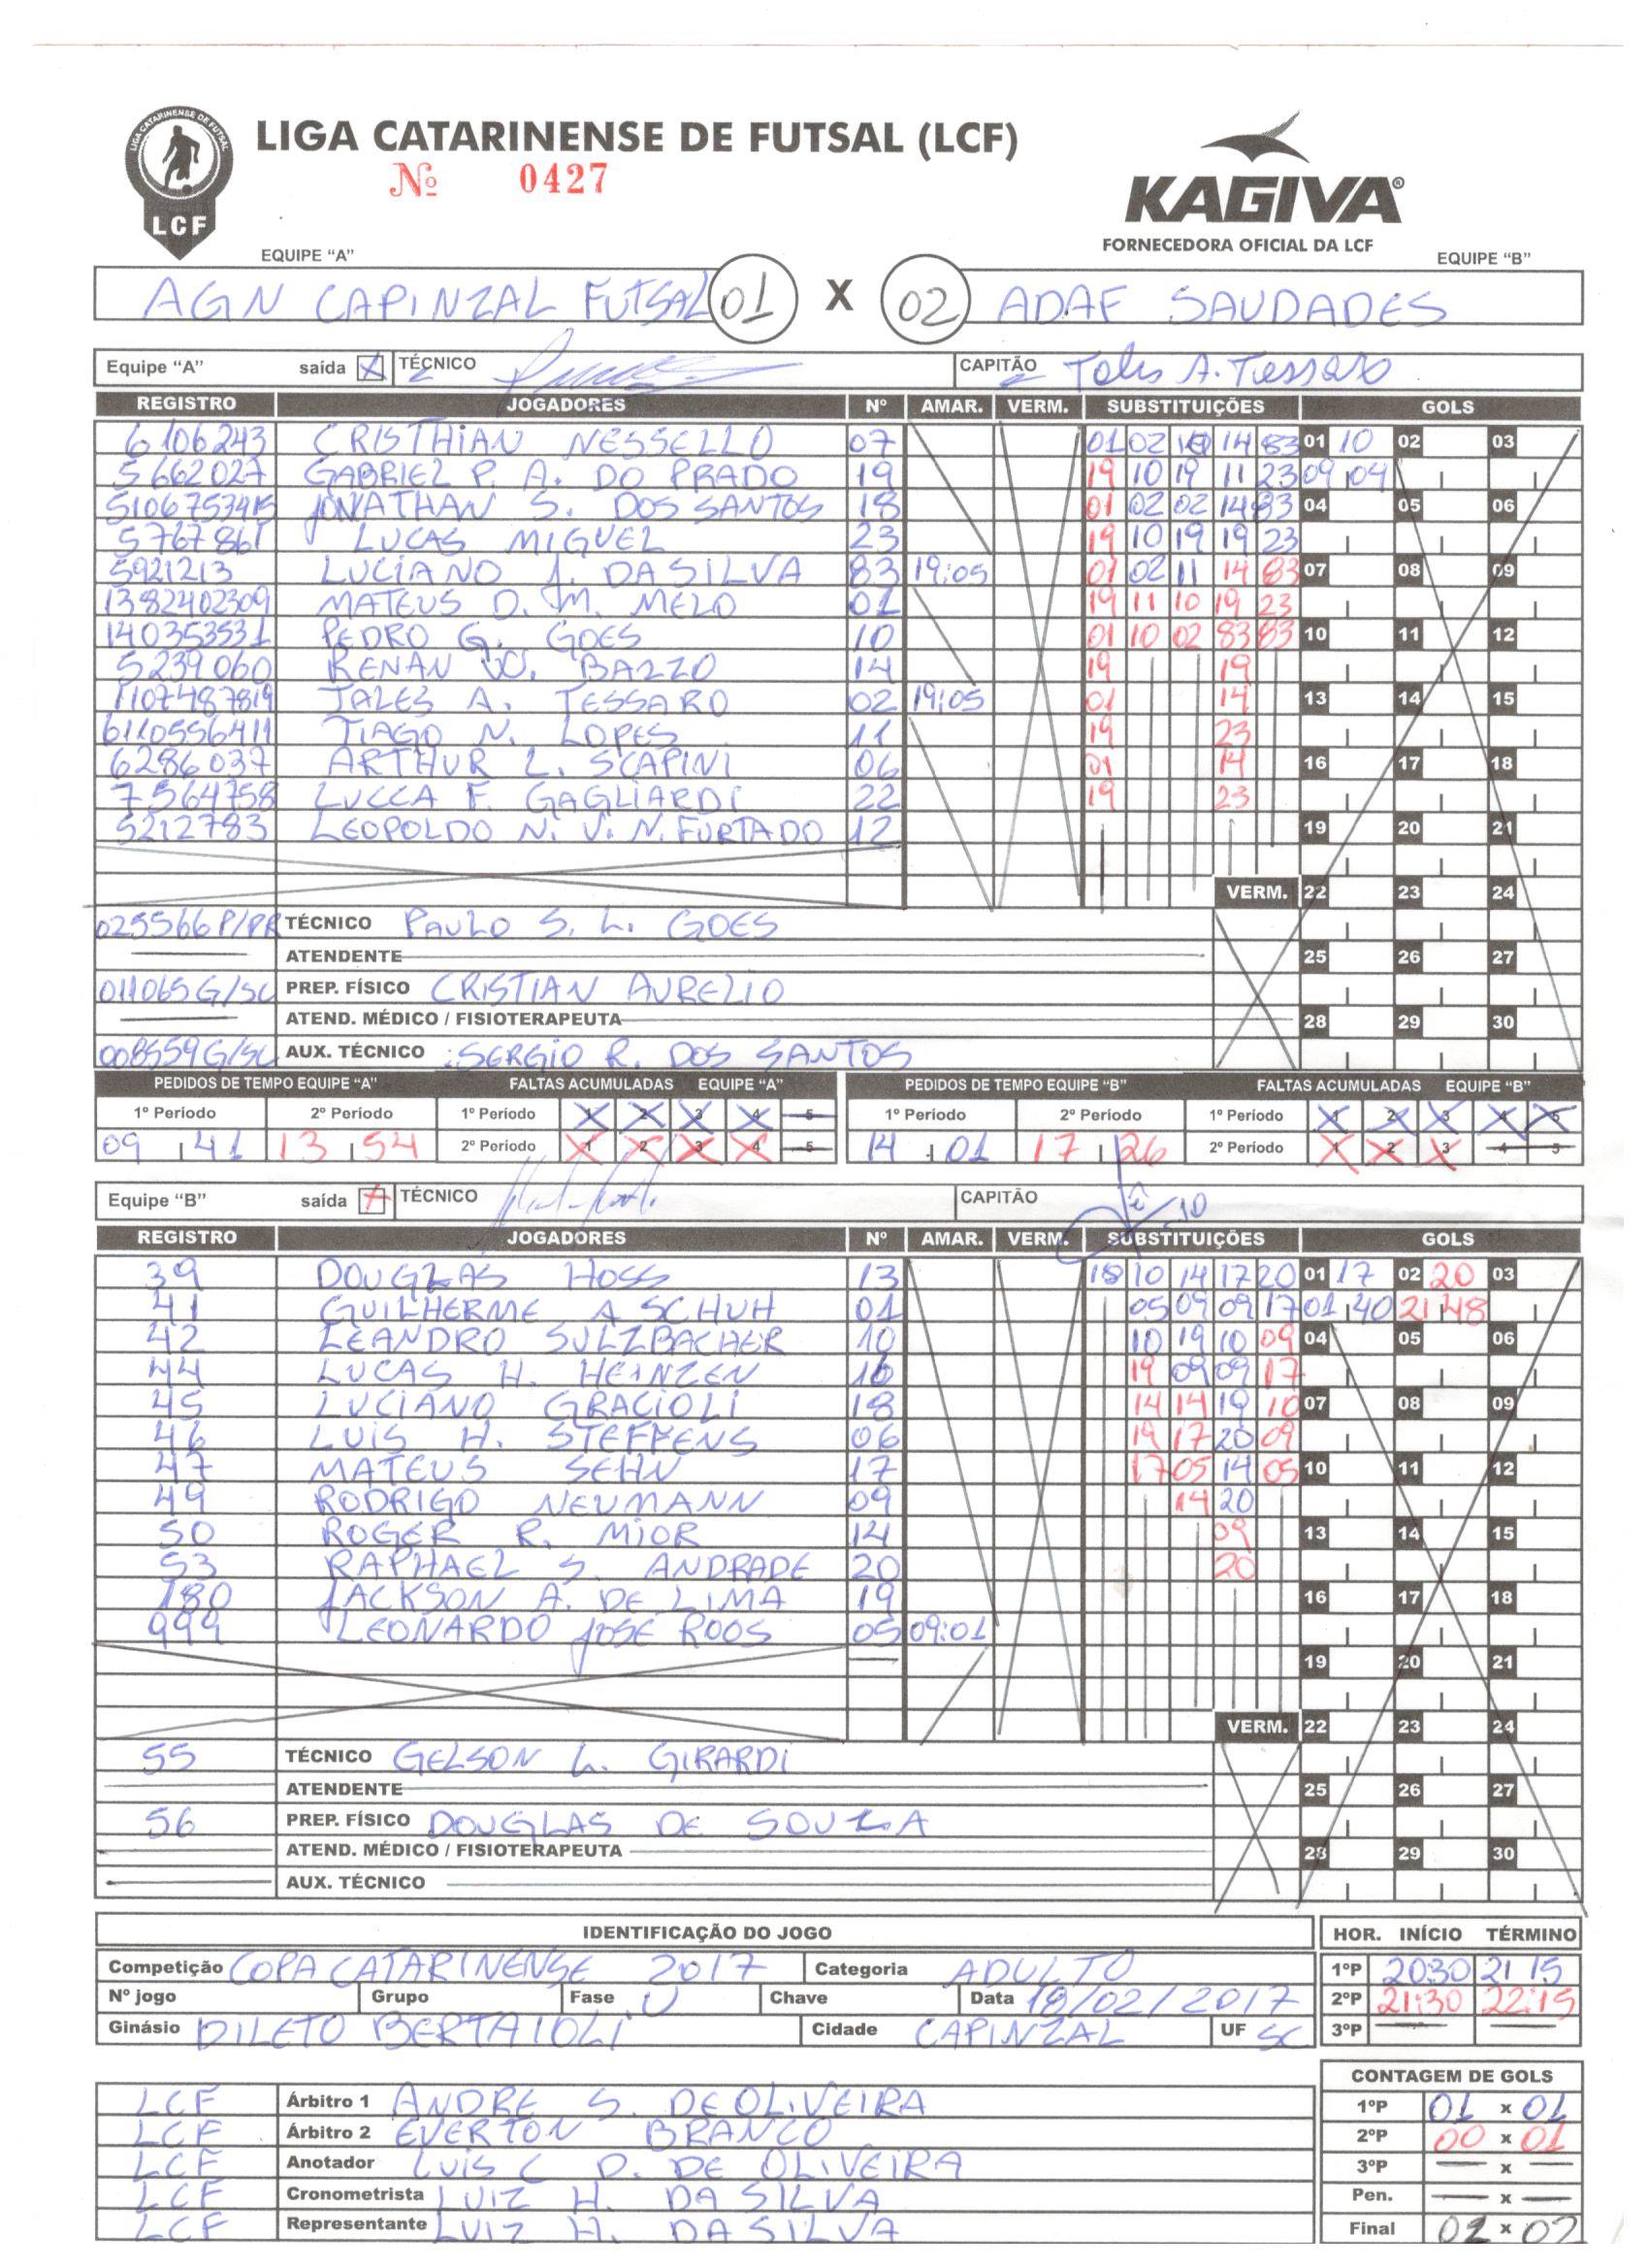 LIGA CATARINENSE DE FUTSAL (LCF)
Nº 0427
LIGA CATARINENSE DE FUTSAL
LCF
KAGIVA®
FORNECEDORA OFICIAL DA LCF
EQUIPE "A" EQUIPE "B"
AGN CAPINZAL FUTSAL 01 X 02 ADAF SAUDADES
Equipe "A" saída X TÉCNICO CAPITÃO Tales A. Tessaro
REGISTRO JOGADORES Nº AMAR. VERM. SUBSTITUIÇÕES GOLS
6106243 CRISTHIAN NESSELLO 07 01 02 10 14 83 01 10 02 03
5662027 GABRIEL P. A. DO PRADO 19 19 10 19 11 23 09 04
5106753415 JONATHAN S. DOS SANTOS 18 01 02 02 14 83 04 05 06
5767861 LUCAS MIGUEL 23 19 10 19 19 23
5921213 LUCIANO A. DA SILVA 83 19:05 01 02 11 14 83 07 08 09
1382402309 MATEUS D. M. MELO 01 19 11 10 19 23
140353531 PEDRO G. GOES 10 01 10 02 83 83 10 11 12
5239060 RENAN W. BAZZO 14 19 19
1107487819 TALES A. TESSARO 02 19:05 01 14 13 14 15
6110556411 TIAGO N. LOPES 11 19 23
6286037 ARTHUR L. SCAPINI 06 01 14 16 17 18
7564758 LUCCA F. GAGLIARDI 22 19 23
5212783 LEOPOLDO N. V. N. FURTADO 12 19 20 21
VERM. 22 23 24
025566 P/PR TÉCNICO PAULO S. L. GOES
ATENDENTE 25 26 27
011065 G/SC PREP. FÍSICO CRISTIAN AURELIO
ATEND. MÉDICO / FISIOTERAPEUTA 28 29 30
008559 G/SC AUX. TÉCNICO SERGIO R. DOS SANTOS
PEDIDOS DE TEMPO EQUIPE "A" FALTAS ACUMULADAS EQUIPE "A" PEDIDOS DE TEMPO EQUIPE "B" FALTAS ACUMULADAS EQUIPE "B"
1º Período 2º Período 1º Período 1 2 3 4 5 1º Período 2º Período 1º Período 1 2 3 4 5
09 41 13 54 2º Período 1 2 3 4 5 14 01 17 26 2º Período 1 2 3 4 5
Equipe "B" saída X TÉCNICO CAPITÃO 10
REGISTRO JOGADORES Nº AMAR. VERM. SUBSTITUIÇÕES GOLS
39 DOUGLAS HOSS 13 18 10 14 17 20 01 17 02 20 03
41 GUILHERME A SCHUH 01 05 09 09 17 01 40 21 48
42 LEANDRO SULZBACHER 10 10 19 10 09 04 05 06
44 LUCAS H. HEINZEN 16 19 09 09 17
45 LUCIANO GRACIOLI 18 14 14 19 10 07 08 09
46 LUIS H. STEFFENS 06 19 17 20 09
47 MATEUS SEHN 17 17 05 14 05 10 11 12
49 RODRIGO NEUMANN 09 14 20
50 ROGER R. MIOR 14 09 13 14 15
53 RAPHAEL S. ANDRADE 20 20
180 JACKSON A. DE LIMA 19 16 17 18
999 LEONARDO JOSE ROOS 05 09:01
19 20 21
VERM. 22 23 24
55 TÉCNICO GELSON L. GIRARDI
ATENDENTE 25 26 27
56 PREP. FÍSICO DOUGLAS DE SOUZA
ATEND. MÉDICO / FISIOTERAPEUTA 28 29 30
AUX. TÉCNICO
IDENTIFICAÇÃO DO JOGO HOR. INÍCIO TÉRMINO
Competição COPA CATARINENSE 2017 Categoria ADULTO 1ºP 20:30 21 15
Nº jogo Grupo Fase U Chave Data 18/02/2017 2ºP 21:30 22:15
Ginásio DILETO BERTAIOLI Cidade CAPINZAL UF SC 3ºP
CONTAGEM DE GOLS
LCF Árbitro 1 ANDRE S. DE OLIVEIRA 1ºP 01 x 01
LCF Árbitro 2 EVERTON BRANCO 2ºP 00 x 01
LCF Anotador LUIS C D. DE OLIVEIRA 3ºP x
LCF Cronometrista LUIZ H. DA SILVA Pen. x
LCF Representante LUIZ H. DA SILVA Final 01 x 02